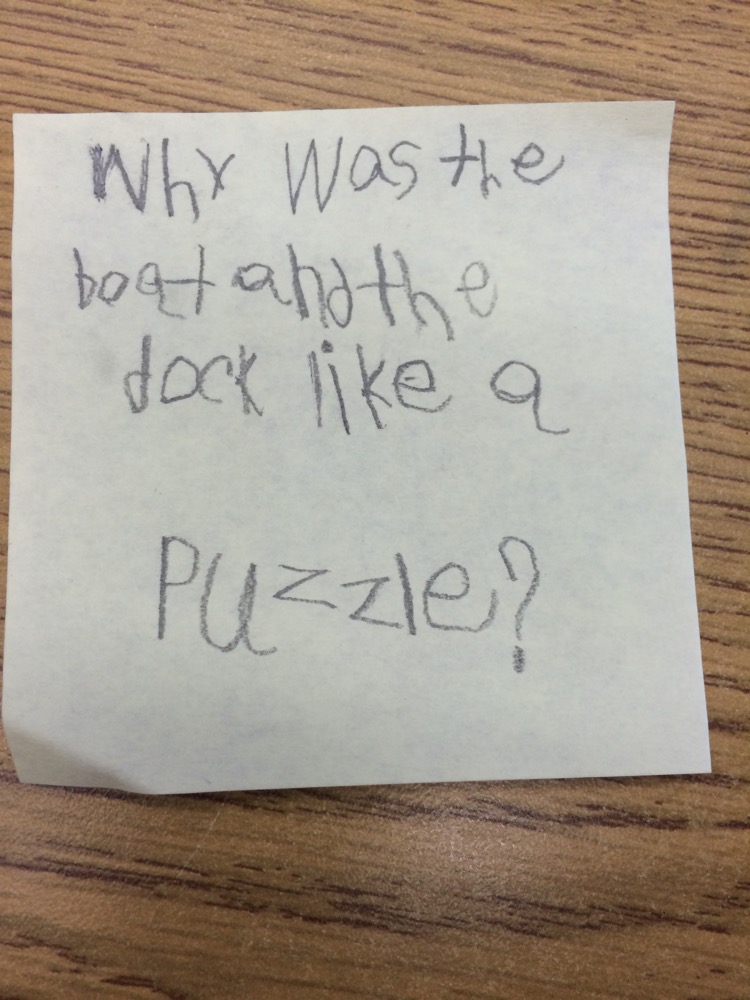 Why was the
boat and the
dock like a
Puzzle?